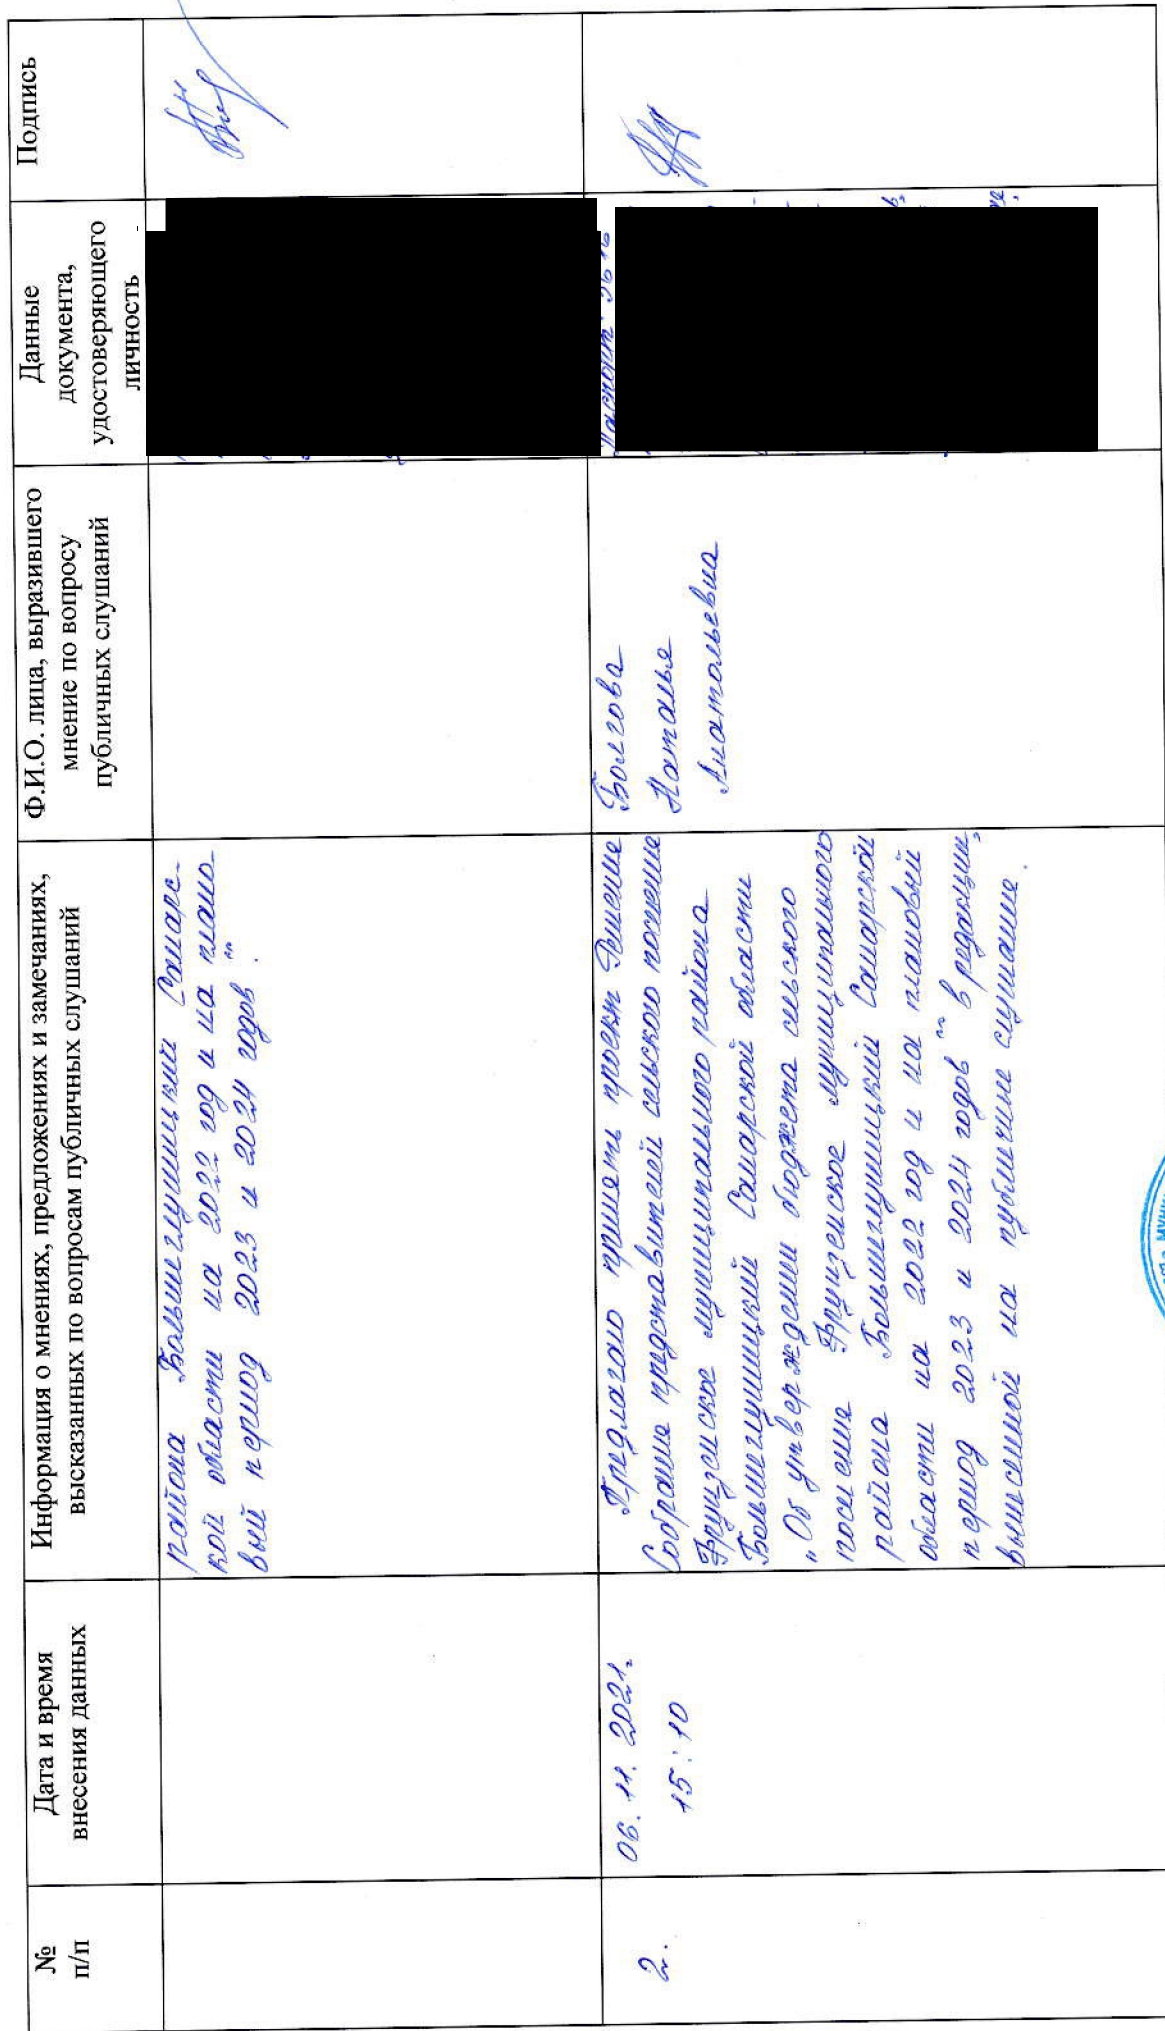 №
п/п
Дата и время
внесения данных
Информация о мнениях, предложениях и замечаниях,
высказанных по вопросам публичных слушаний
Ф.И.О. лица, выразившего
мнение по вопросу
публичных слушаний
Данные
документа,
удостоверяющего
личность
Подпись
района Большеглушицкий Самарс-
кой области на 2022 год и на плано-
вый период 2023 и 2024 годов".
2.
06.11.2021г.
15:10
Предлагаю принять проект Решение
Собрание представителей сельского поселение
Фрунзенское муниципального района
Большеглушицкий Самарской области
"Об утверждении бюджета сельского
поселения Фрунзенское муниципального
района Большеглушицкий Самарской
области на 2022 год и на плановый
период 2023 и 2024 годов" в редакции,
вынесенной на публичные слушание.
Болгова
Наталья
Анатольевна
Паспорт